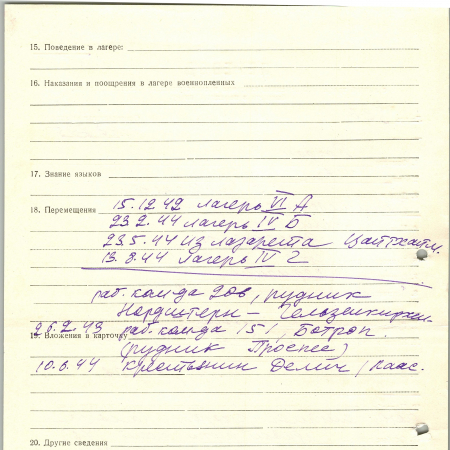 15. Поведение в лагере:
16. Наказания и поощрения в лагере военнопленных
17. Знание языков
15.12.42 лагерь VI А
18. Перемещения
23.2.44 лагерь IV Б
23.5.44 из лазарета Цайтхайн.
13.8.44 лагерь IV Г
раб. команда 208, рудник
Нордштерн - Гельзенкирхен.
26.2.43 раб. команда 151, Ботроп.
19. Вложения в карточку
(рудник Проспер)
10.6.44 крестьянин Делич
20. Другие сведения